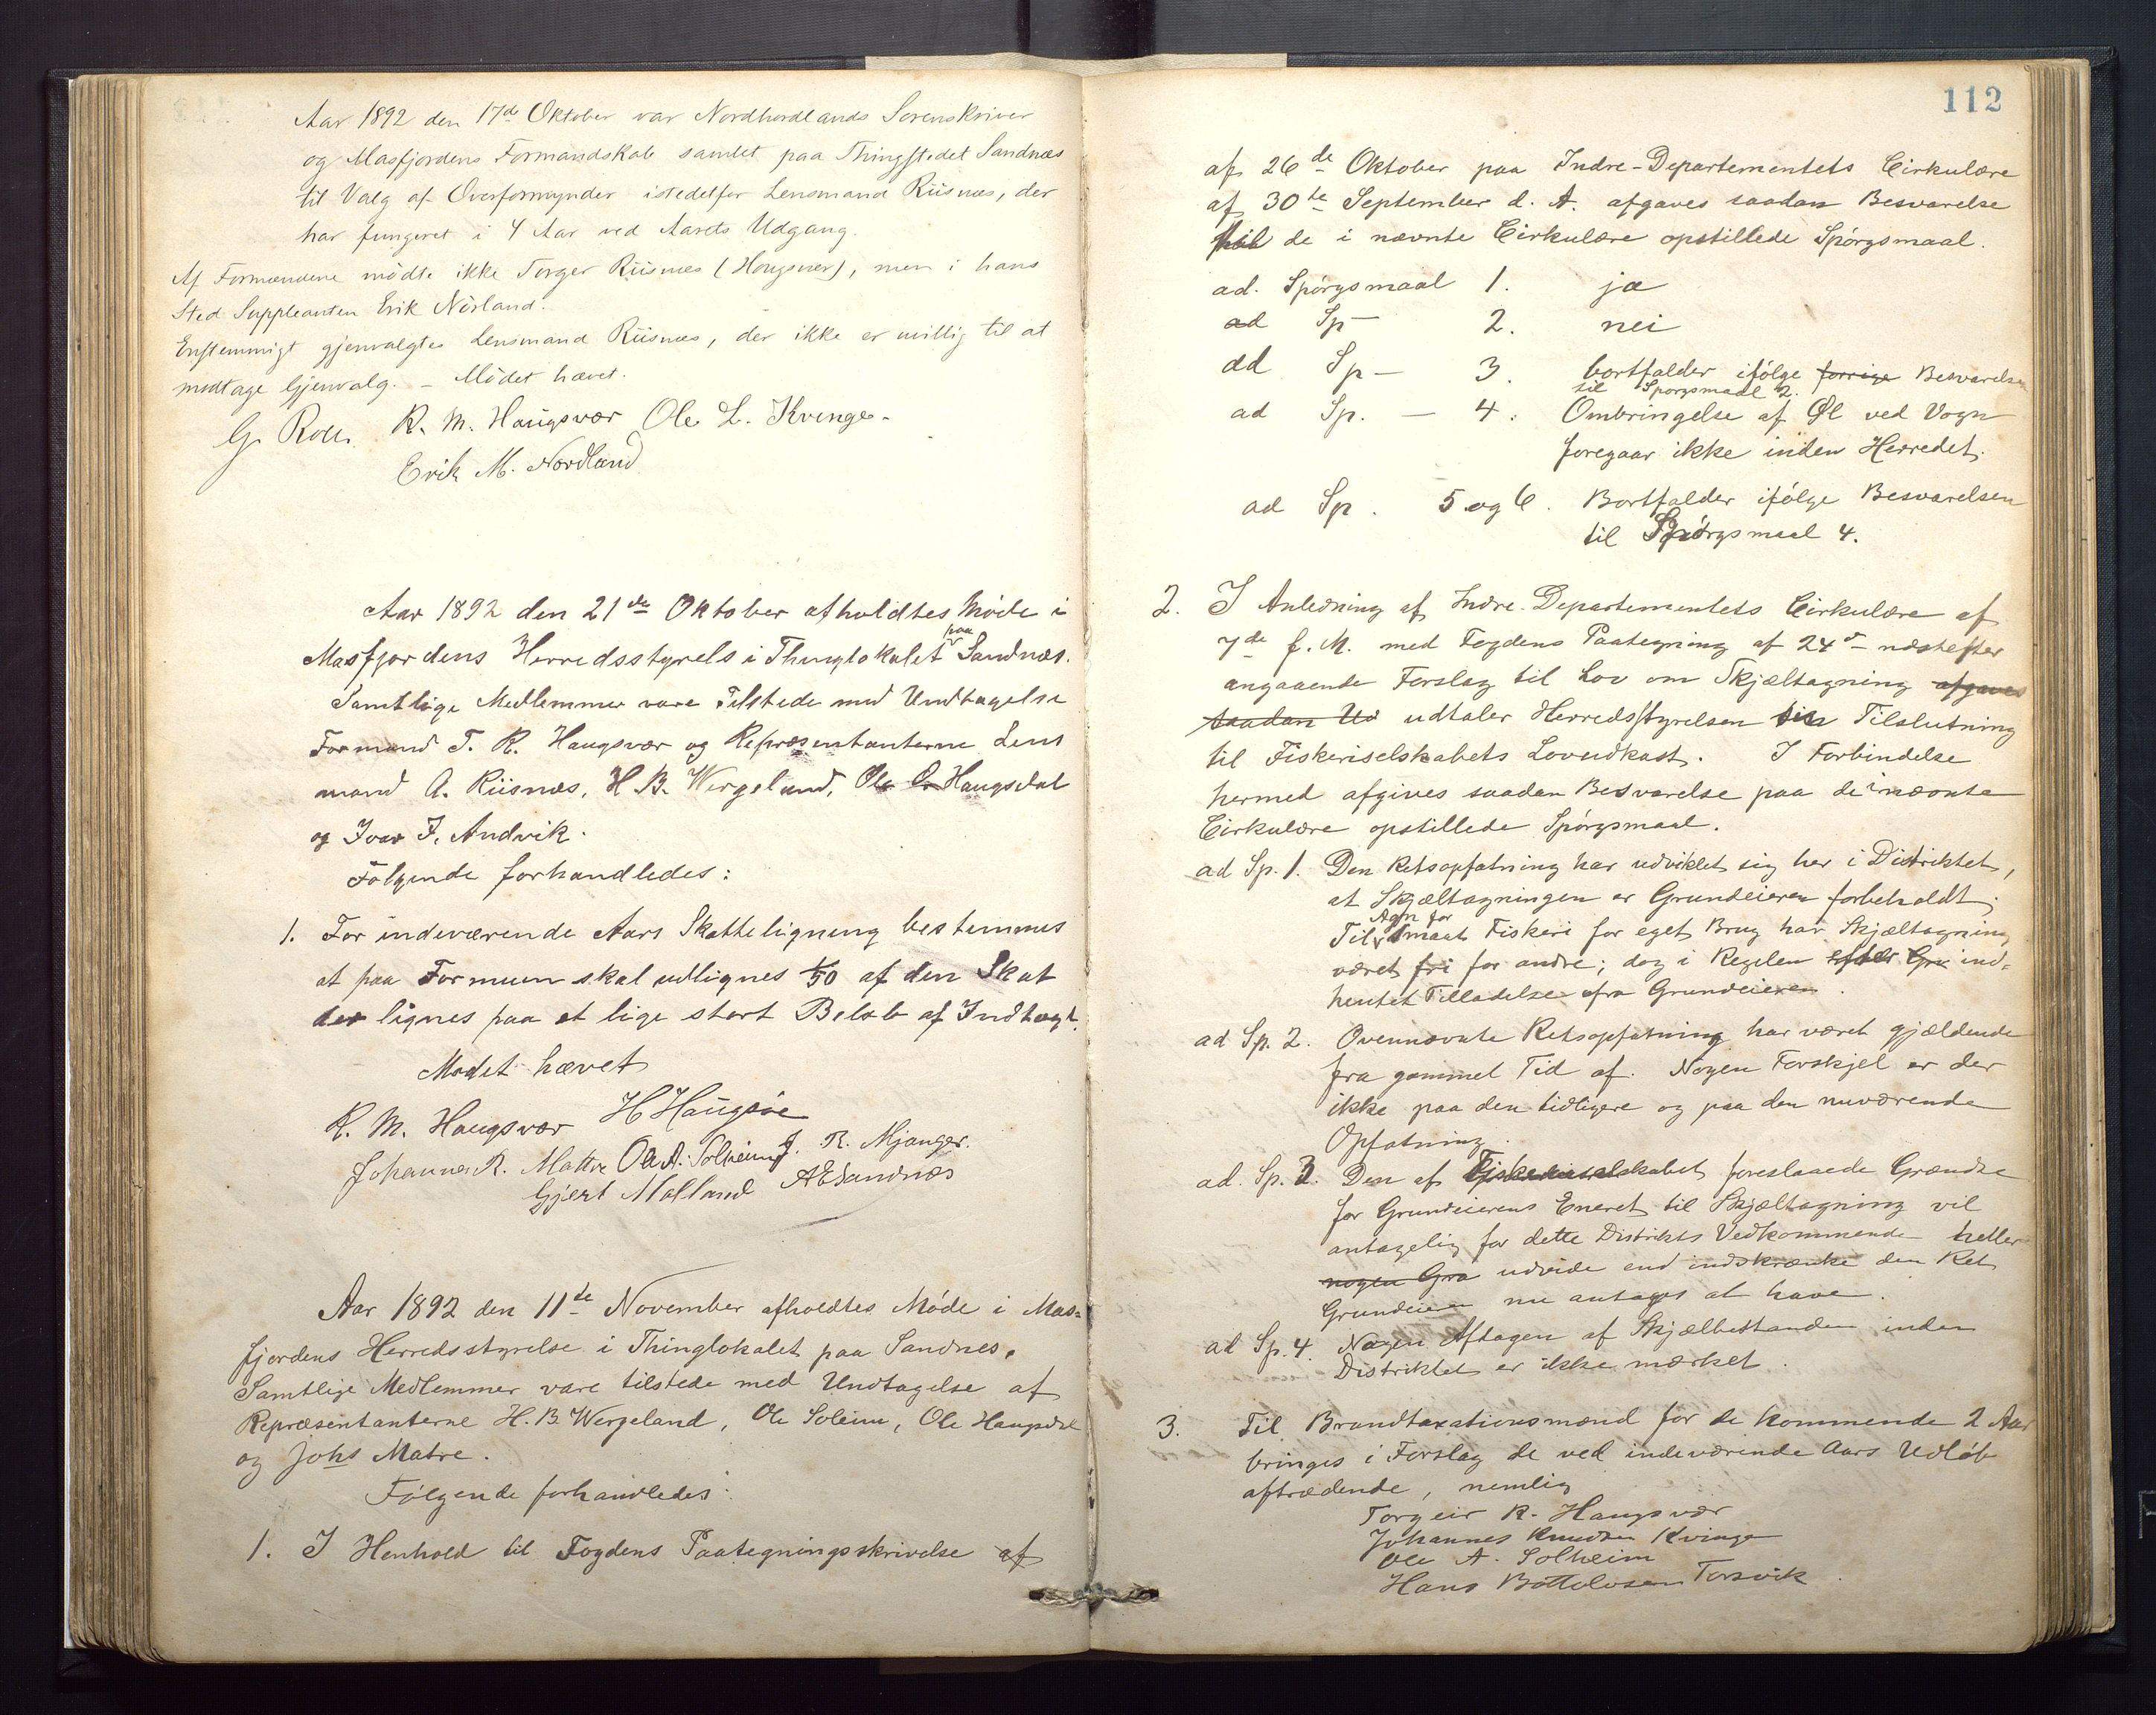 Aar 1892 den 17de Oktober var Nordhordlands Sorenskriver
og Masfjordens Formandskab samlet paa Thingstedet Sandnæs
til Valg af Overformynder istedetfor Lensmand Riisnæs, der
har fungeret i 4 Aar ved Aarets Udgang.
Af Formændene mødte ikke Torger Riisnæs (Hougsvær), men i hans
Sted Suppleanten Erik Nörland.
Enstemmigt gjenvalgtes Lensmand Riisnæs, der ikke er villig til at
modtage Gjenvalg. – Mödet hævet.
G. R. M. Haugsvær Ole L. Kvinge
Erik M. Nordland
Aar 1892 den 21de Oktober afholdtes Møde i
Masfjordens Herredsstyrels i Thinglokalet paa Sandnæs.
Samtlige Medlemmer vare Tilstede med Undtagelse
Formand T. R. Haugsvær og Repræsentanterne Lens
mand A. Riisnæs, H. B. Wergeland, Ole Haugsdal
og Ivar I. Andvik.
Følgende forhandledes:
1. For indeværende Aars Skatteligning bestemmes
at paa Formuen skal udlignes 1/50 af den Skat
der lignes paa et lige stort Beløb af Indtægt.
Mødet hævet
R. M. Haugsvær H Haugsöe
Johannes R. Mattre Ole A. Solheim J. R. Mjanger.
Gjert Molland AESandnæs
Aar 1892 den 11te November afholdtes Møde i Mas=
fjordens Herredsstyrelse i Thinglokalet paa Sandnes.
Samtlige Medlemmer vare tilstede med Undtagelse af
Repræsentanterne H. B. Wergeland, Ole Soleim, Ole Haugsdal
og Johs Matre.
Følgende forhandledes:
1. I Henhold til Fogdens Paategningsskrivelse af
112
af 26de Oktober paa Indre-Departementets Cirkulære
af 30te September d. A. afgaves saadan Besvarelse
til de i nævnte Cirkulære opstillede Spörgsmaal.
ad. Spörgsmaal 1. ja
ad Sp – 2. nei
ad Sp – 3. bortfalder ifölge forrige Besvarelse
til Spørgsmaal 2.
ad Sp. – 4. Ombringelse af Øl ved Vogn
foregaar ikke inden Herredet.
ad Sp. 5 og 6. Bortfalder ifölge Besvarelsen
til Spörgsmaal 4.
2. I Anledning af Indre-Departementets Cirkulære af
7de f. M. med Fogdens Paategning af 24de næstefter
angaaende Forslag til Lov om Skjæltagning afgaves
saadan Ud udtaler Herredsstyrelsen sin Tilslutning
til Fiskeriselskabets Lovudkast. I Forbindelse
hermed afgives saadan Besvarelse paa de i nævnte
Cirkulære opstillede Spörgsmaal.
ad Sp. 1. Den Retsopfatning har udviklet sig her i Distriktet,
at Skjæltagningen er Grundeieren forbeholdt;
Til Agn for smaat Fiskeri for eget Brug har Skjæltagning
været fri for andre; dog i Regelen efter Gru ind-
hentet Tilladelse fra Grundeieren.
ad Sp. 2. Ovennævnte Retsopfatning har været gjældende
fra gammel Tid af. Nogen Forskjel er der
ikke paa den tidligere og paa den nuværende
Opfatning.
ad. Sp. 3. Den af Fiskeriselskabet foreslaaede Grændse
for Grundeierens Eneret til Skjæltagning vil
antagelig for dette Distrikts Vedkommende heller
nogen Gra udvide end indskrænke den Ret
Grundeieren nu antages at have.
ad Sp. 4. Nogen Aftagen af Skjælbestanden inden
Distriktet er ikke mærket.
3. Til Brandtaxationsmænd for de kommende 2 Aar
bringes i Forslag de ved indeværende Aars Udløb
aftrædende, nemlig
Torgeir R. Haugsvær
Johannes Knudsen Kvinge
Ole A. Solheim
Hans Bottolvsen Torsvik.